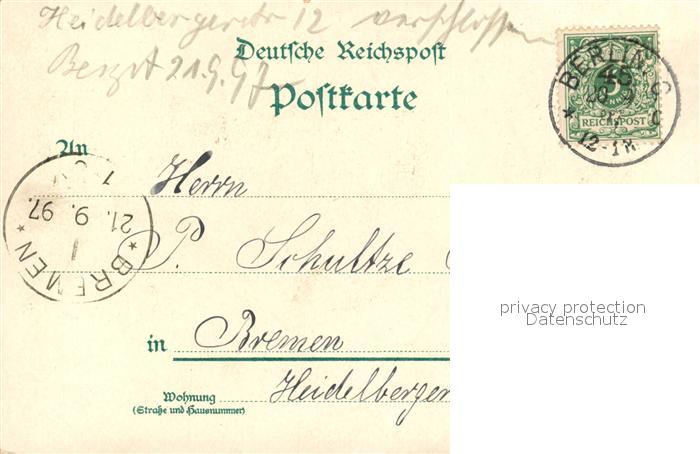 Heidelbergerstr 12 verschlossen
Deutsche Reichspost
21.9.97
Postkarte
BERLIN
REICHSPOST
12-1N
An
Herrn
21. 9. 97.
BREMEN
P. Schultze
privacy protection
Datenschutz
in Bremen
Wohnung
(Straße und Hausnummer)
Heidelberger